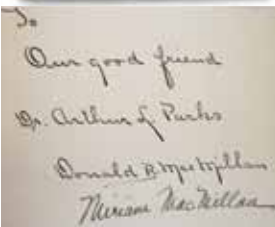 To
Our good friend
Dr. Arthur L Parks
Donald B. MacMillan
Miriam MacMillan